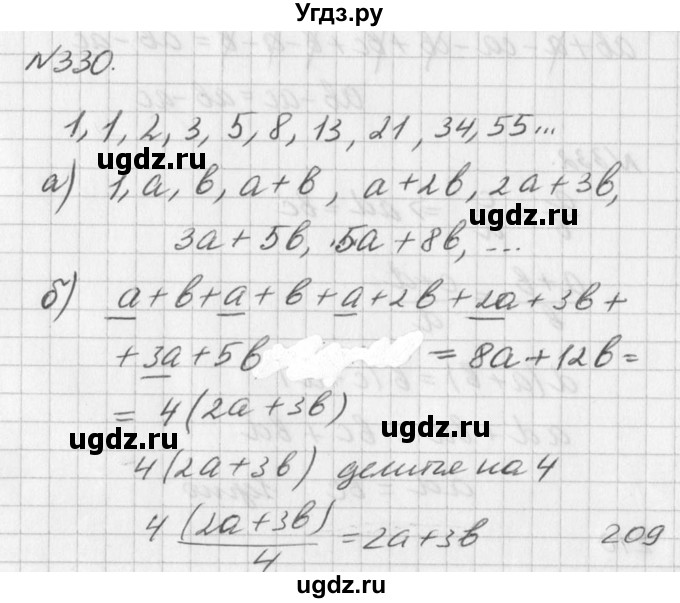 Угдз.ру
№330.
1, 1, 2, 3, 5, 8, 13, 21, 34, 55...
ugdz.ru ugdz.ru
а) 1, а, в, а+в, а+2в, 2а+3в,
ugdz.ru
3а+5в, 5а+8в, ...
б) а+в+а+в+а+2в+2а+3в+
+3а+5в = 8а+12в=
= 4(2а+3в)
ugdz.ru ugdz.ru
4(2а+3в) делится на 4
4(2а+3в)/4 = 2а+3в 209
ugdz.ru